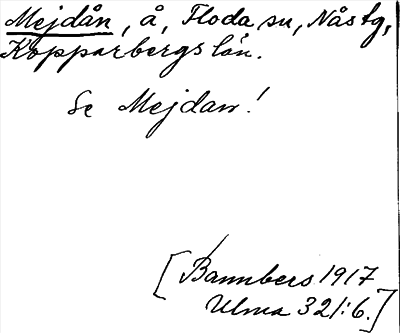 Mejdån, å, Floda sn, Nås tg,
Kopparbergs län.
Se Mejdan!
[Bannbers 1917
Ulma 321:6.]